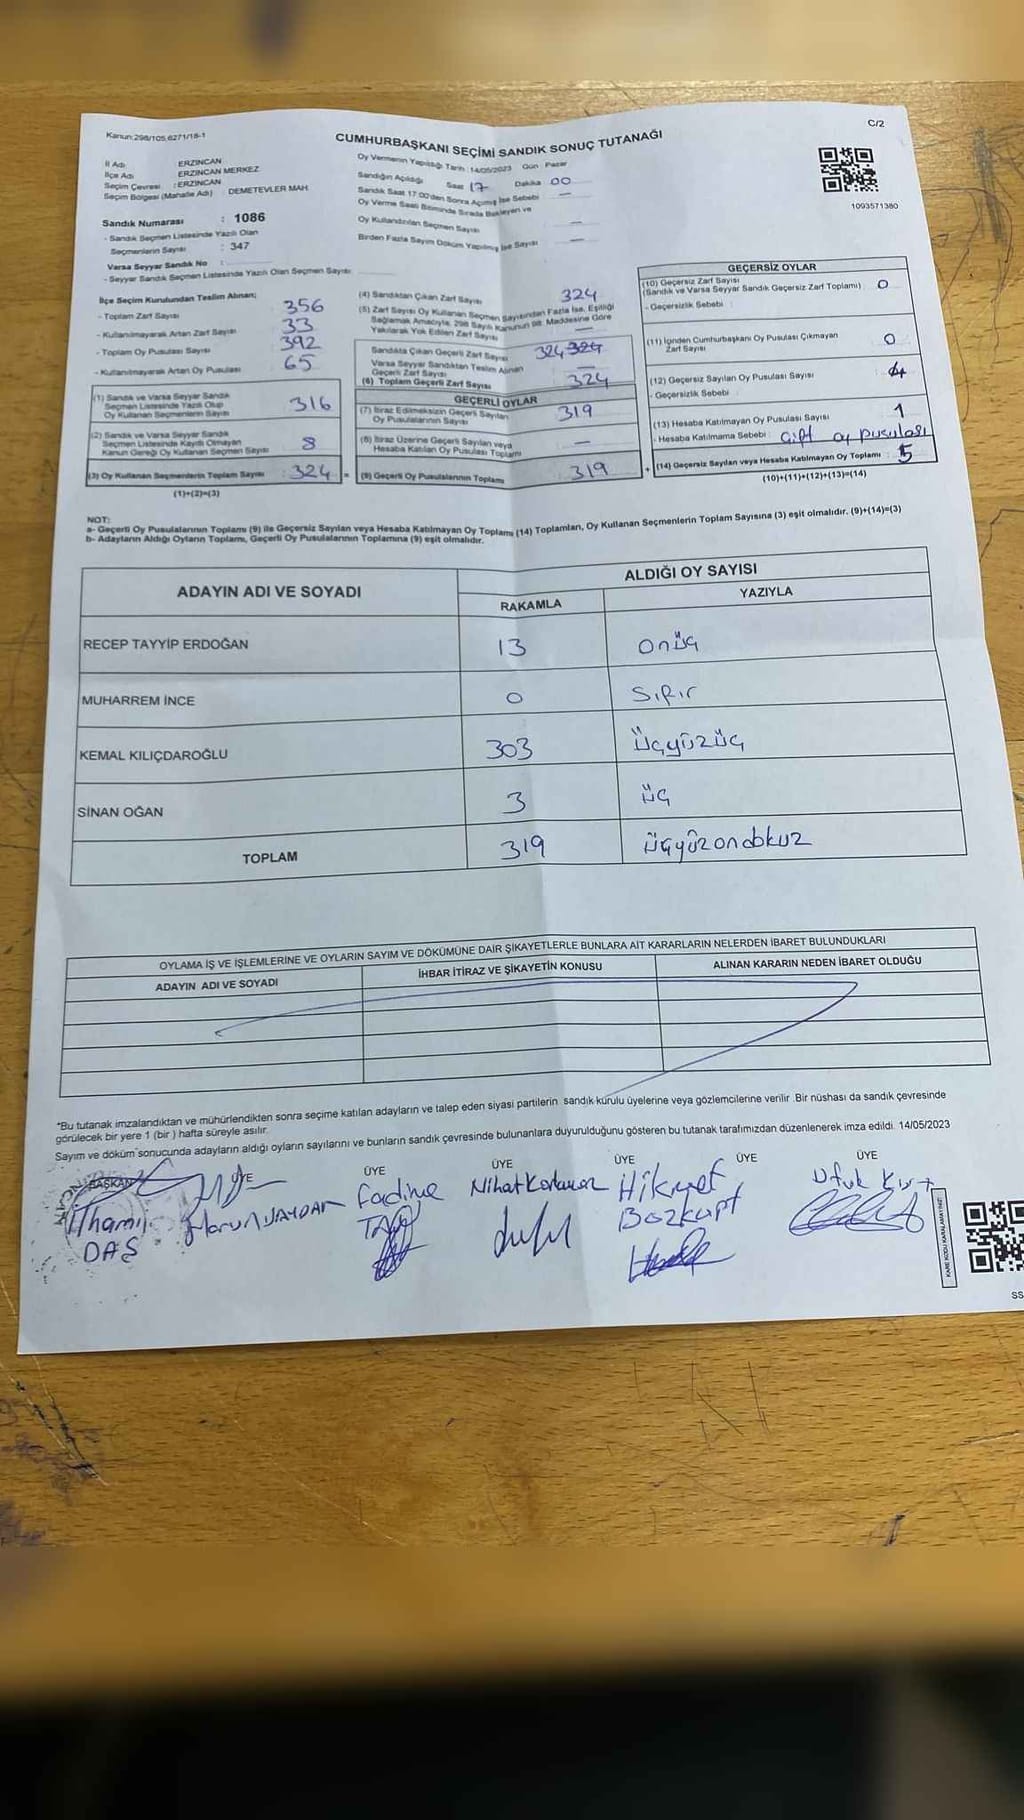 Kanun:298/105,6271/18-1
C/2
CUMHURBAŞKANI SEÇİMİ SANDIK SONUÇ TUTANAĞI
İl Adı : ERZİNCAN
İlçe Adı : ERZİNCAN MERKEZ
Seçim Çevresi : ERZİNCAN
Seçim Bölgesi (Mahalle Adı) : DEMETEVLER MAH
Sandık Numarası : 1086
- Sandık Seçmen Listesinde Yazılı Olan
Seçmenlerin Sayısı : 347
Varsa Seyyar Sandık No :
- Seyyar Sandık Seçmen Listesinde Yazılı Olan Seçmen Sayısı:
Oy Vermenin Yapıldığı Tarih :14/05/2023 Gün Pazar
Sandığın Açıldığı Saat 17 Dakika 00
Sandık Saat 17:00'den Sonra Açılmış İse Sebebi —
Oy Verme Saati Bitiminde Sırada Bekleyen ve
Oy Kullandırılan Seçmen Sayısı —
Birden Fazla Sayım Döküm Yapılmış İse Sayısı —
1093571380
İlçe Seçim Kurulundan Teslim Alınan;
- Toplam Zarf Sayısı 356
- Kullanılmayarak Artan Zarf Sayısı 33
- Toplam Oy Pusulası Sayısı 392
- Kullanılmayarak Artan Oy Pusulası 65
(1) Sandık ve Varsa Seyyar Sandık
Seçmen Listesinde Yazılı Olup
Oy Kullanan Seçmenlerin Sayısı 316
(2) Sandık ve Varsa Seyyar Sandık
Seçmen Listesinde Kayıtlı Olmayan
Kanun Gereği Oy Kullanan Seçmen Sayısı 8
(3) Oy Kullanan Seçmenlerin Toplam Sayısı 324 =
(1)+(2)=(3)
(4) Sandıktan Çıkan Zarf Sayısı 324
(5) Zarf Sayısı Oy Kullanan Seçmen Sayısından Fazla İse, Eşitliği
Sağlamak Amacıyla, 298 Sayılı Kanunun 98. Maddesine Göre
Yakılarak Yok Edilen Zarf Sayısı —
Sandıkta Çıkan Geçerli Zarf Sayısı 324 324
Varsa Seyyar Sandıktan Teslim Alınan
Geçerli Zarf Sayısı —
(6) Toplam Geçerli Zarf Sayısı 324
GEÇERLİ OYLAR
(7) İtiraz Edilmeksizin Geçerli Sayılan
Oy Pusulalarının Sayısı 319
(8) İtiraz Üzerine Geçerli Sayılan veya
Hesaba Katılan Oy Pusulası Toplamı —
(9) Geçerli Oy Pusulalarının Toplamı 319 +
GEÇERSİZ OYLAR
(10) Geçersiz Zarf Sayısı
(Sandık ve Varsa Seyyar Sandık Geçersiz Zarf Toplamı) : 0
- Geçersizlik Sebebi :
(11) İçinden Cumhurbaşkanı Oy Pusulası Çıkmayan
Zarf Sayısı 0
(12) Geçersiz Sayılan Oy Pusulası Sayısı 4
- Geçersizlik Sebebi
(13) Hesaba Katılmayan Oy Pusulası Sayısı 1
- Hesaba Katılmama Sebebi : Çift oy pusulası
(14) Geçersiz Sayılan veya Hesaba Katılmayan Oy Toplamı : 5
(10)+(11)+(12)+(13)=(14)
NOT:
a- Geçerli Oy Pusulalarının Toplamı (9) ile Geçersiz Sayılan veya Hesaba Katılmayan Oy Toplamı (14) Toplamları, Oy Kullanan Seçmenlerin Toplam Sayısına (3) eşit olmalıdır. (9)+(14)=(3)
b- Adayların Aldığı Oyların Toplamı, Geçerli Oy Pusulalarının Toplamına (9) eşit olmalıdır.
ADAYIN ADI VE SOYADI
ALDIĞI OY SAYISI
RAKAMLA YAZIYLA
RECEP TAYYİP ERDOĞAN 13 onüç
MUHARREM İNCE 0 Sıfır
KEMAL KILIÇDAROĞLU 303 üçyüzüç
SİNAN OĞAN 3 üç
TOPLAM 319 üçyüzondokuz
OYLAMA İŞ VE İŞLEMLERİNE VE OYLARIN SAYIM VE DÖKÜMÜNE DAİR ŞİKAYETLERLE BUNLARA AİT KARARLARIN NELERDEN İBARET BULUNDUKLARI
ADAYIN ADI VE SOYADI İHBAR İTİRAZ VE ŞİKAYETİN KONUSU ALINAN KARARIN NEDEN İBARET OLDUĞU
*Bu tutanak imzalandıktan ve mühürlendikten sonra seçime katılan adayların ve talep eden siyasi partilerin sandık kurulu üyelerine veya gözlemcilerine verilir .Bir nüshası da sandık çevresinde
görülecek bir yere 1 (bir ) hafta süreyle asılır.
Sayım ve döküm sonucunda adayların aldığı oyların sayılarını ve bunların sandık çevresinde bulunanlara duyurulduğunu gösteren bu tutanak tarafımızdan düzenlenerek imza edildi. 14/05/2023
BAŞKAN ÜYE ÜYE ÜYE ÜYE ÜYE ÜYE
İlhami DAŞ
Fadime
Nihat
Hikmet Bozkurt
Ufuk Kurt
KARE KODU KARALAMAYINIZ
SS